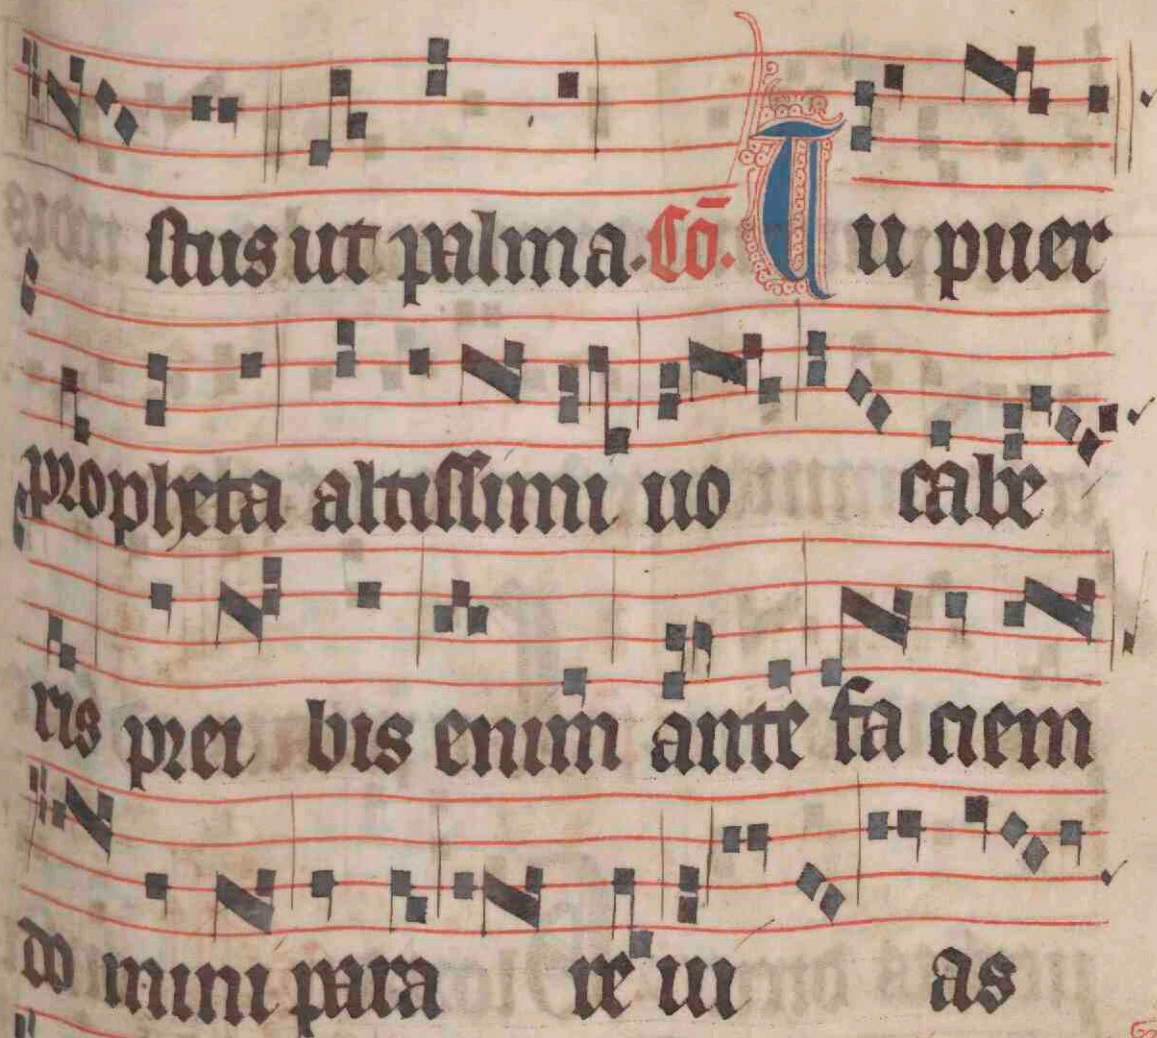 stus ut palma. Cō. Tu puer
propheta altissimi uo cabe
ris prei bis enim ante fa ciem
do mini para re ui as